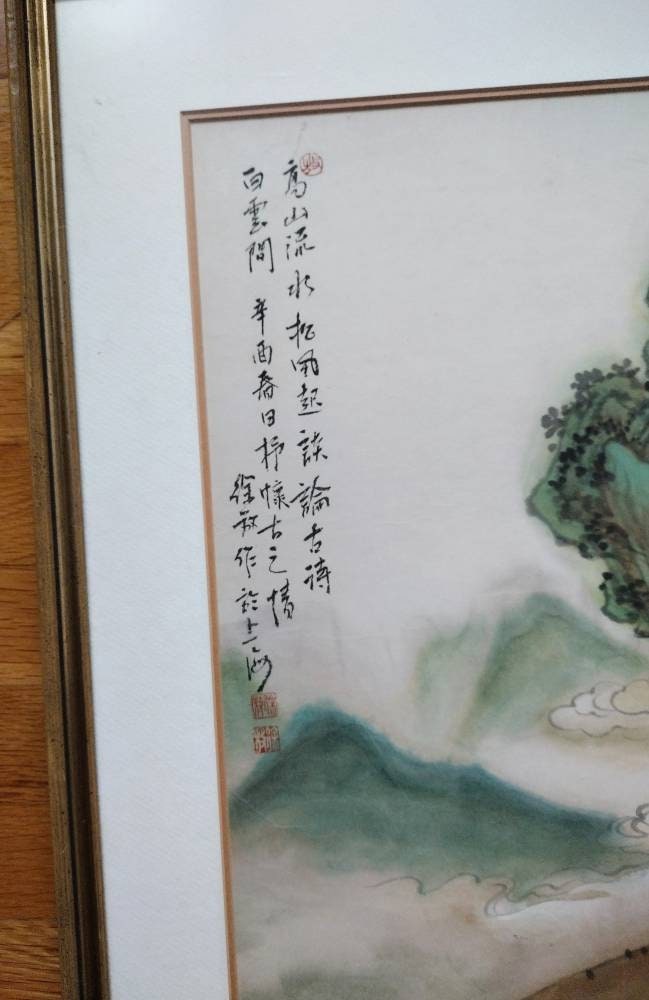 高山流水松風起談論古詩
白雲間 辛酉春日抒懷古之情
徐敏作於上海